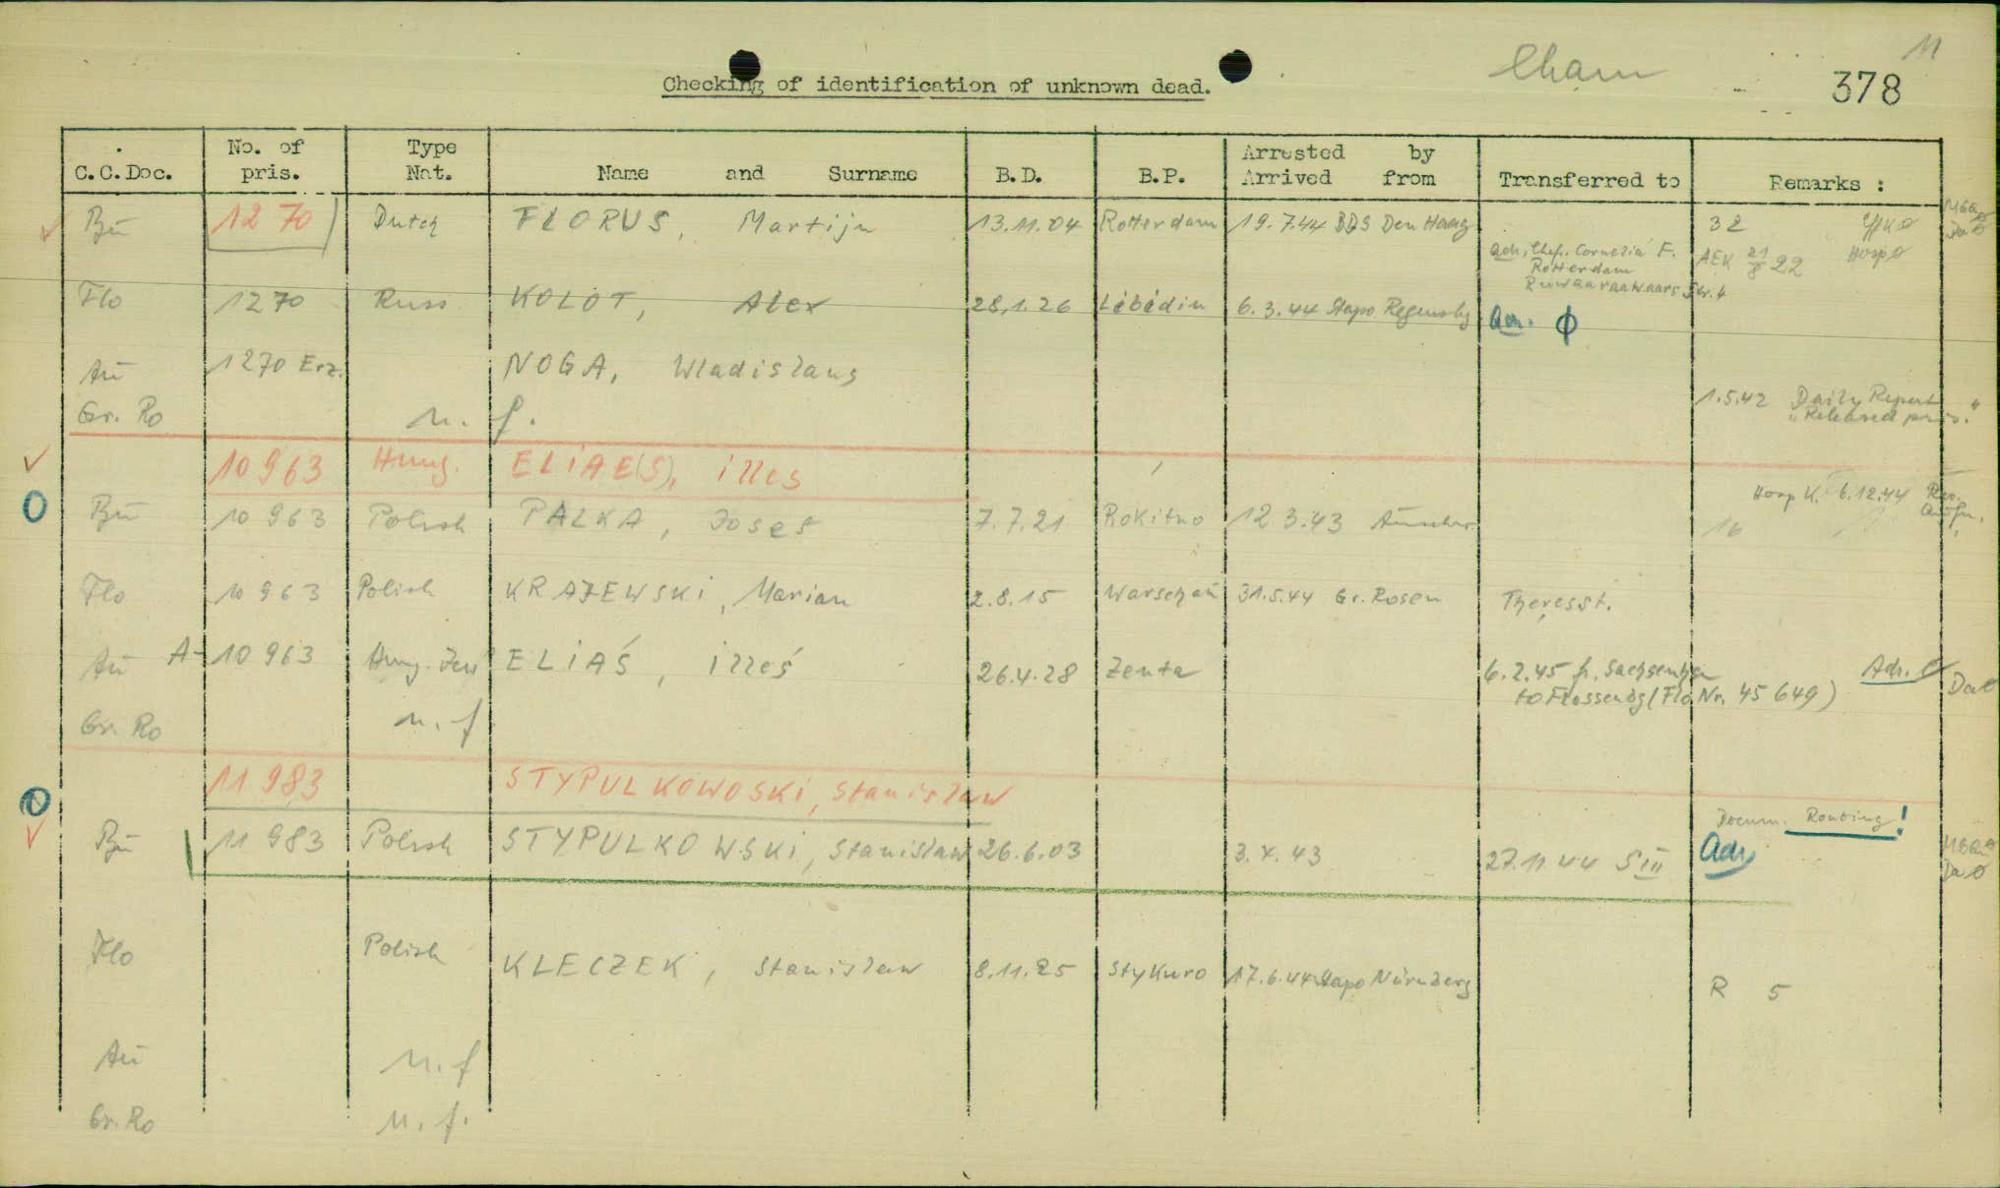 Cham
11
378
Checking of identification of unknown dead.
C.C.Doc. No. of pris. Type Nat. Name and Surname B.D. B.P. Arrested by Arrived from Transferred to Remarks :
Bū 1270 Dutch FLORUS, Martijn 13.11.04 Rotterdam 19.7.44 BDS Den Haag 32
Adr. Chef. Cornelia F. AEK 21/8 22
Rotterdam
Flo 1270 Russ KOLOT, Alex 28.1.26 Lebedin 6.3.44 Stapo Regensbg
Aū 1270 Erz. NOGA, Wladislaus
1.5.42 Daily Report
Gr. Ro n. f. "Released pris."
10963 Hung. ELIAE(S), illes
Hosp K. 6.12.44
Bū 10963 Polish PALKA, Josef 7.7.21 Rokitno 12.3.43 Auschw. 16
Flo 10963 Polish KRAJEWSKi, Marian 2.8.15 Warschau 31.5.44 Gr. Rosen Theresst.
Aū A-10963 Hung. Jew ELiAŚ, illeś 26.4.28 Zenta 6.2.45 fr. Sachsenhsn Adr.
to Flossenbg (Flo Nr. 45649)
Gr. Ro n. f
11983 STYPULKOWOSKi, Stanislaw
Docum. Routing!
Bū 11983 Polish STYPULKOWSKi, Stanislaw 26.6.03 3.X.43 27.11.44 S III Adr
Flo Polish KLECZEK, Stanislaw 8.11.25 Stykuro 17.6.44 Stapo Nürnberg R 5
Aū n. f
Gr. Ro n. f.